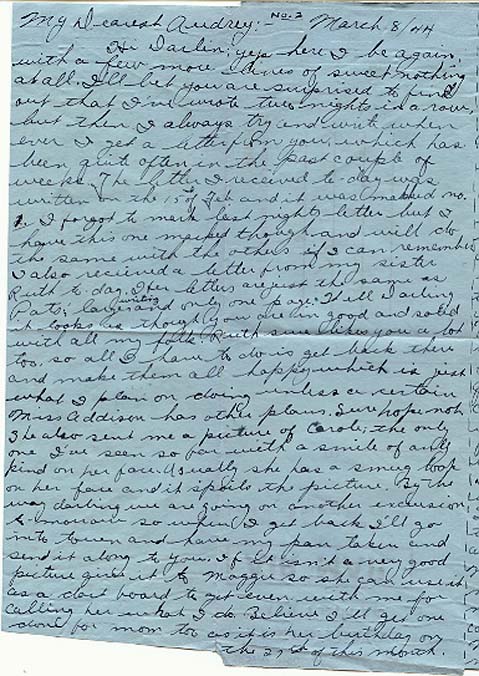 My Dearest Audrey: No. 2 March 8/44
Hi Darlin; yep here I be again,
with a few more lines of sweet nothing
at all. I'll bet you are surprised to find
out that I've wrote two nights in a row,
but then I always try and write when
ever I get a letter from you, which has
been quite often in the past couple of
weeks. The letter I received to-day was
written on the 15th of Feb. and it was marked no.
1. I forgot to mark last nights letter but I
have this one marked though and will do
the same with the others if I can remember
I also received a letter from my sister
Ruth to-day. Her letters are just the same as
Pats; large writing and only one page. Well Darling
it looks as though you are in good and solid
with all my folk. Ruth sure likes you a lot
too. so all I have to do is get back there
and make them all happy which is just
what I plan on doing unless a certain
Miss Addison has other plans. Sure hope not.
She also sent me a picture of Carole; the only
one I've seen so far with a smile of any
kind on her face. Usually she has a smug look
on her face and it spoils the picture. By the
way darling we are going on another excursion
to-morrow so when I get back I'll go
into town and have my pan taken and
send it along to you. If it isn't a very good
picture give it to Maggie so she can use it
as a dart board to get even with me for
calling her what I do. Believe I'll get one
done for mom too as it is her birthday on
the of this month.